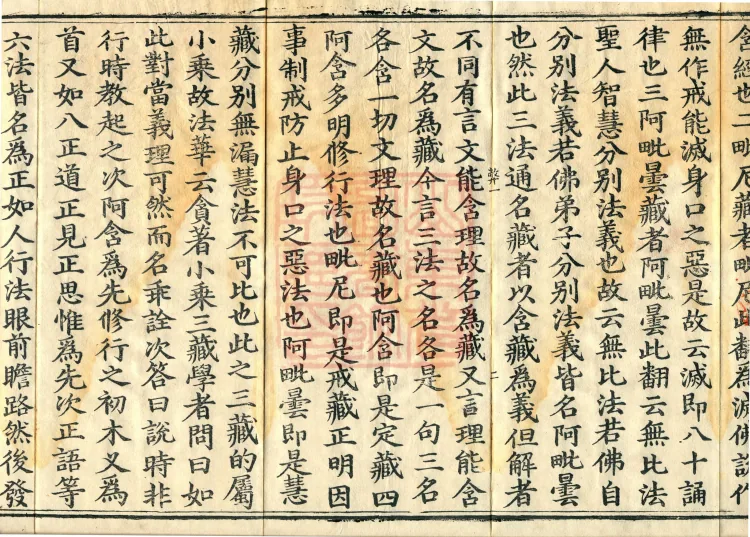 含經也二毗尼藏者毗尼此翻爲滅佛說作
無作戒能滅身口之惡是故云滅即八十誦
律也三阿毗曇藏者阿毗曇此翻云無比法
聖人智慧分別法義也故云無比法若佛自
分別法義若佛弟子分別法義皆名阿毗曇
也然此三法通名藏者以含藏爲義但解者
不同有言文能含理故名爲藏又言理能含
文故名爲藏今言三法之名各是一句三名
各含一切文理故名藏也阿含即是定藏四
阿含多明修行法也毗尼即是戒藏正明因
事制戒防止身口之惡法也阿毗曇即是慧
藏分別無漏慧法不可比也此之三藏的屬
小乘故法華云貪著小乘三藏學者問曰如
此對當義理可然而名乖詮次荅曰說時非
行時教起之次阿含爲先修行之初木叉爲
首又如八正道正見正思惟爲先次正語等
六法皆名爲正如人行法眼前瞻路然後發
弊一
二